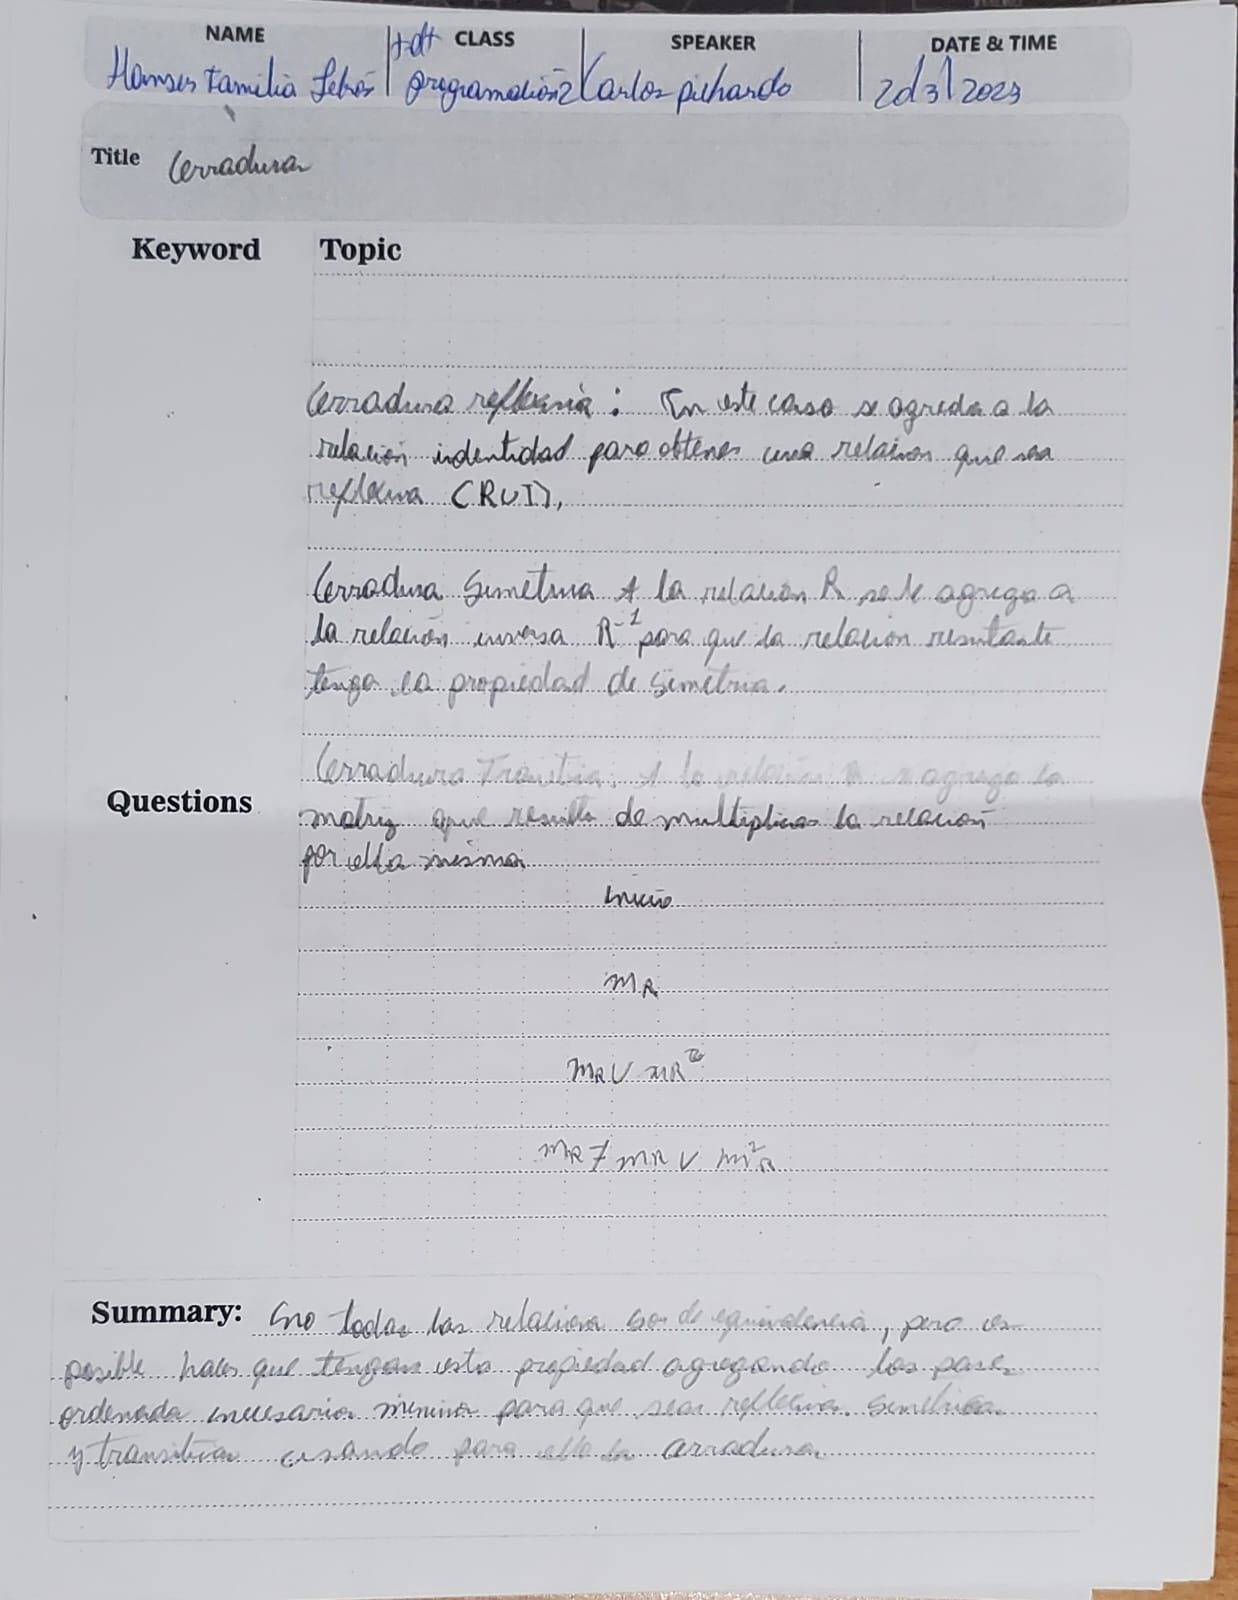 NAME CLASS SPEAKER DATE & TIME
Familia programación2 Carlos pichardo 2d/3/2023
Title Cerradura
Keyword Topic
Cerradura reflexiva: En este caso se agreda a la
relación indentidad para obtener una relaion que sea
reflexiva (RUI),
Cerradura Simétrica A la relación R se le agrega a
la relación inversa R⁻¹ para que la relacion resultante
tenga la propiedad de simetria.
Cerradura Transitiva. A la relación R se agrega la
Questions
matriz que resulta de multiplicar la relación
por ella misma
inicio
MR
MR ∪ MR
MR ≠ MR ∪ M²R
Summary: no todas las relaciones son de equivalencia, pero es
posible hacer que tengan esta propiedad agregando los pares
ordenada necesarios minimos para que sean reflexiva. simétricas
y transitivas usando para ello la cerradura